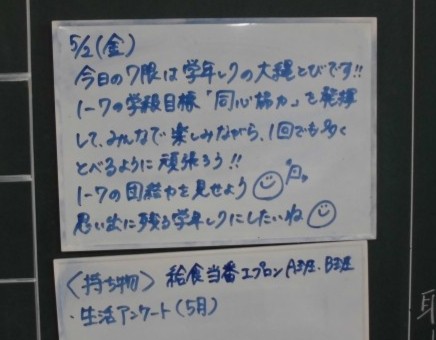 5/2(金)
今日の7限は学年レクの大縄とびです!!
1-7の学級目標「同心協力」を発揮
して、みんなで楽しみながら、1回でも多く
とべるように頑張ろう!!
1-7の団結力を見せよう
思い出に残る学年レクにしたいね
〈持ち物〉 給食当番エプロンA班・B班
・生活アンケート(5月)